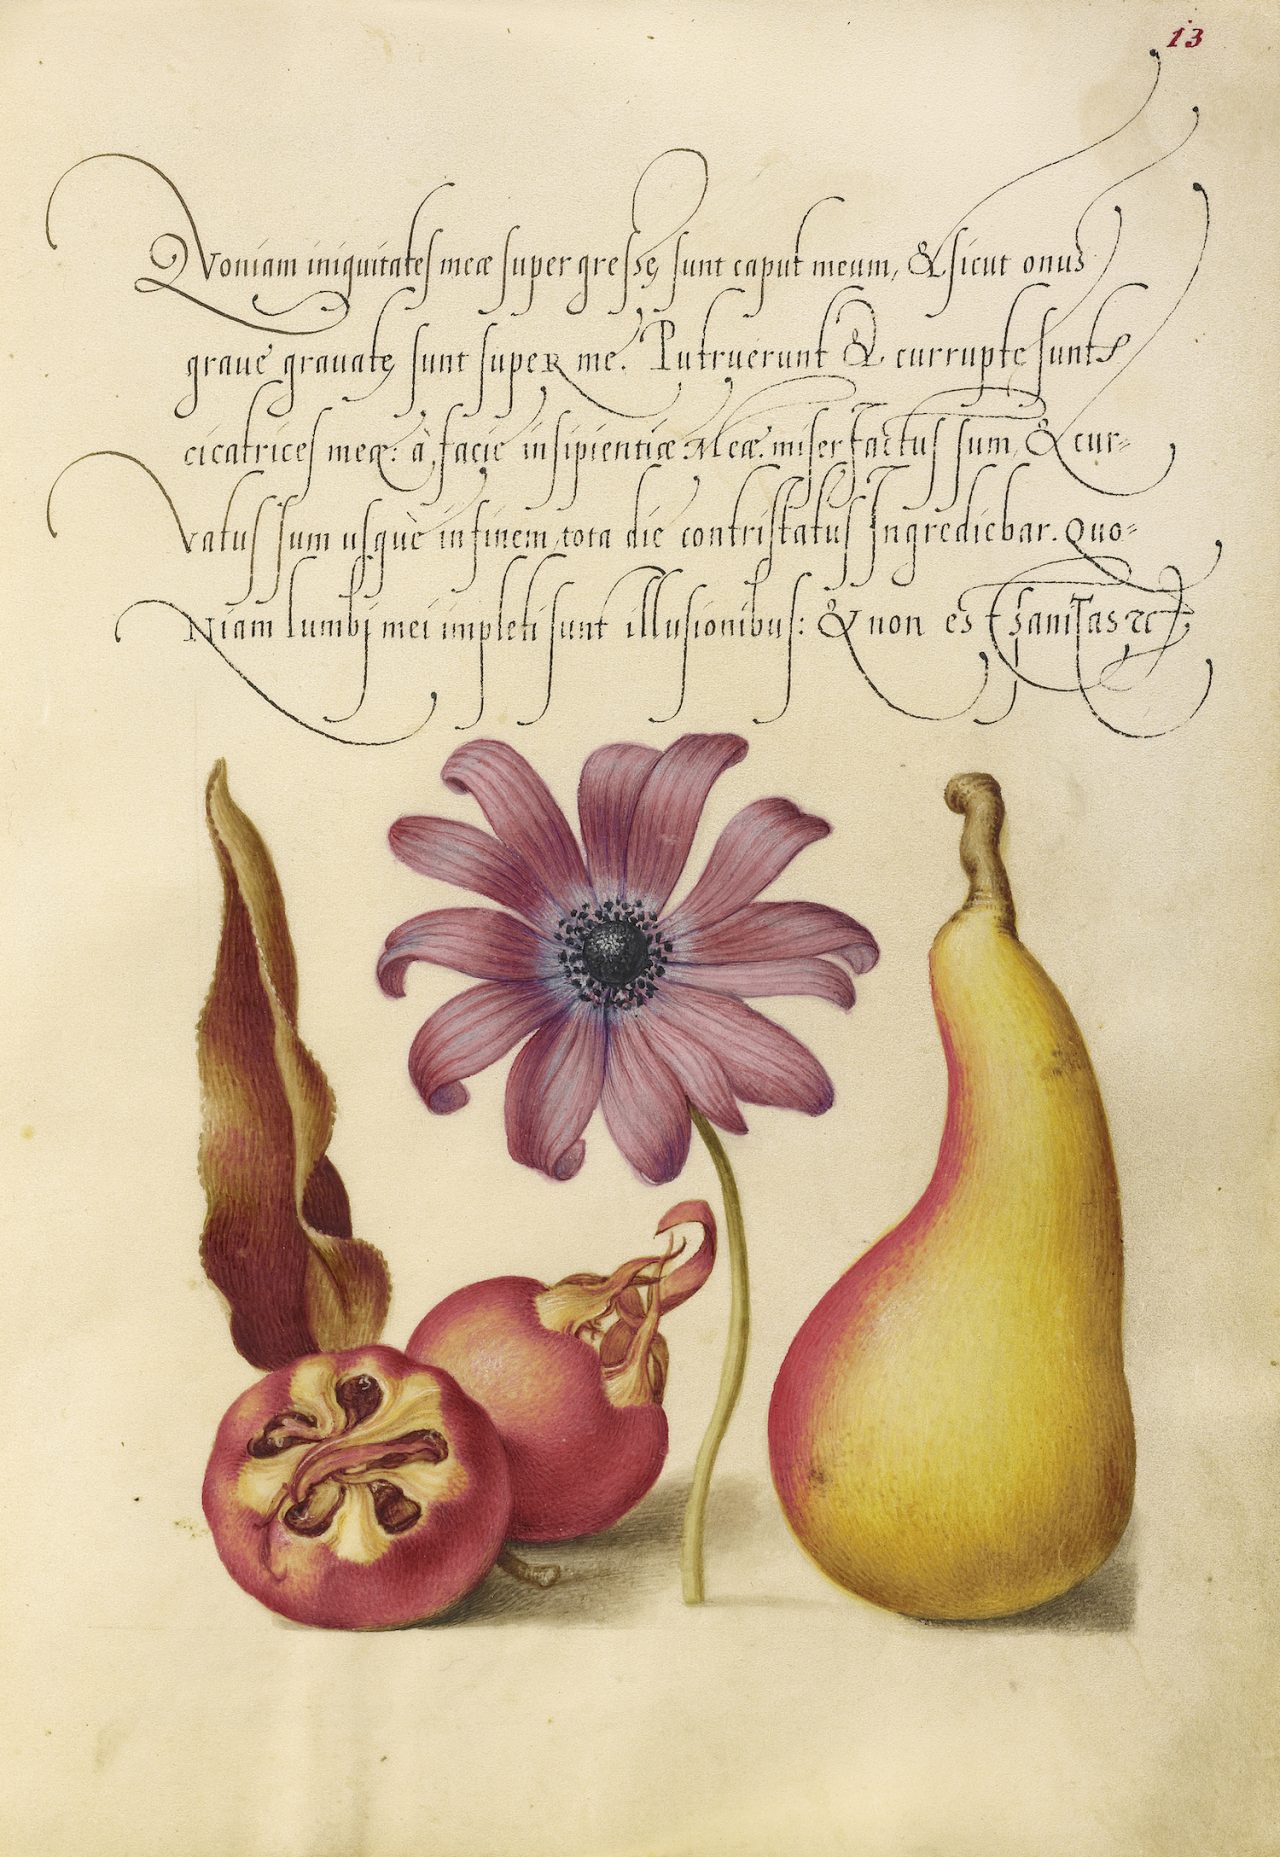 13
Quoniam iniquitates meæ supergressę sunt caput meum, & sicut onus
graue grauatę sunt super me. Putruerunt & currupte sunt
cicatrices meę: à facie insipientiæ Meæ. miser factus sum, & cur=
vatus sum usquè in finem, tota die contristatus Ingrediebar. quo=
Niam lumbj mei impleti sunt illusionibus: & non est sanitas &ct